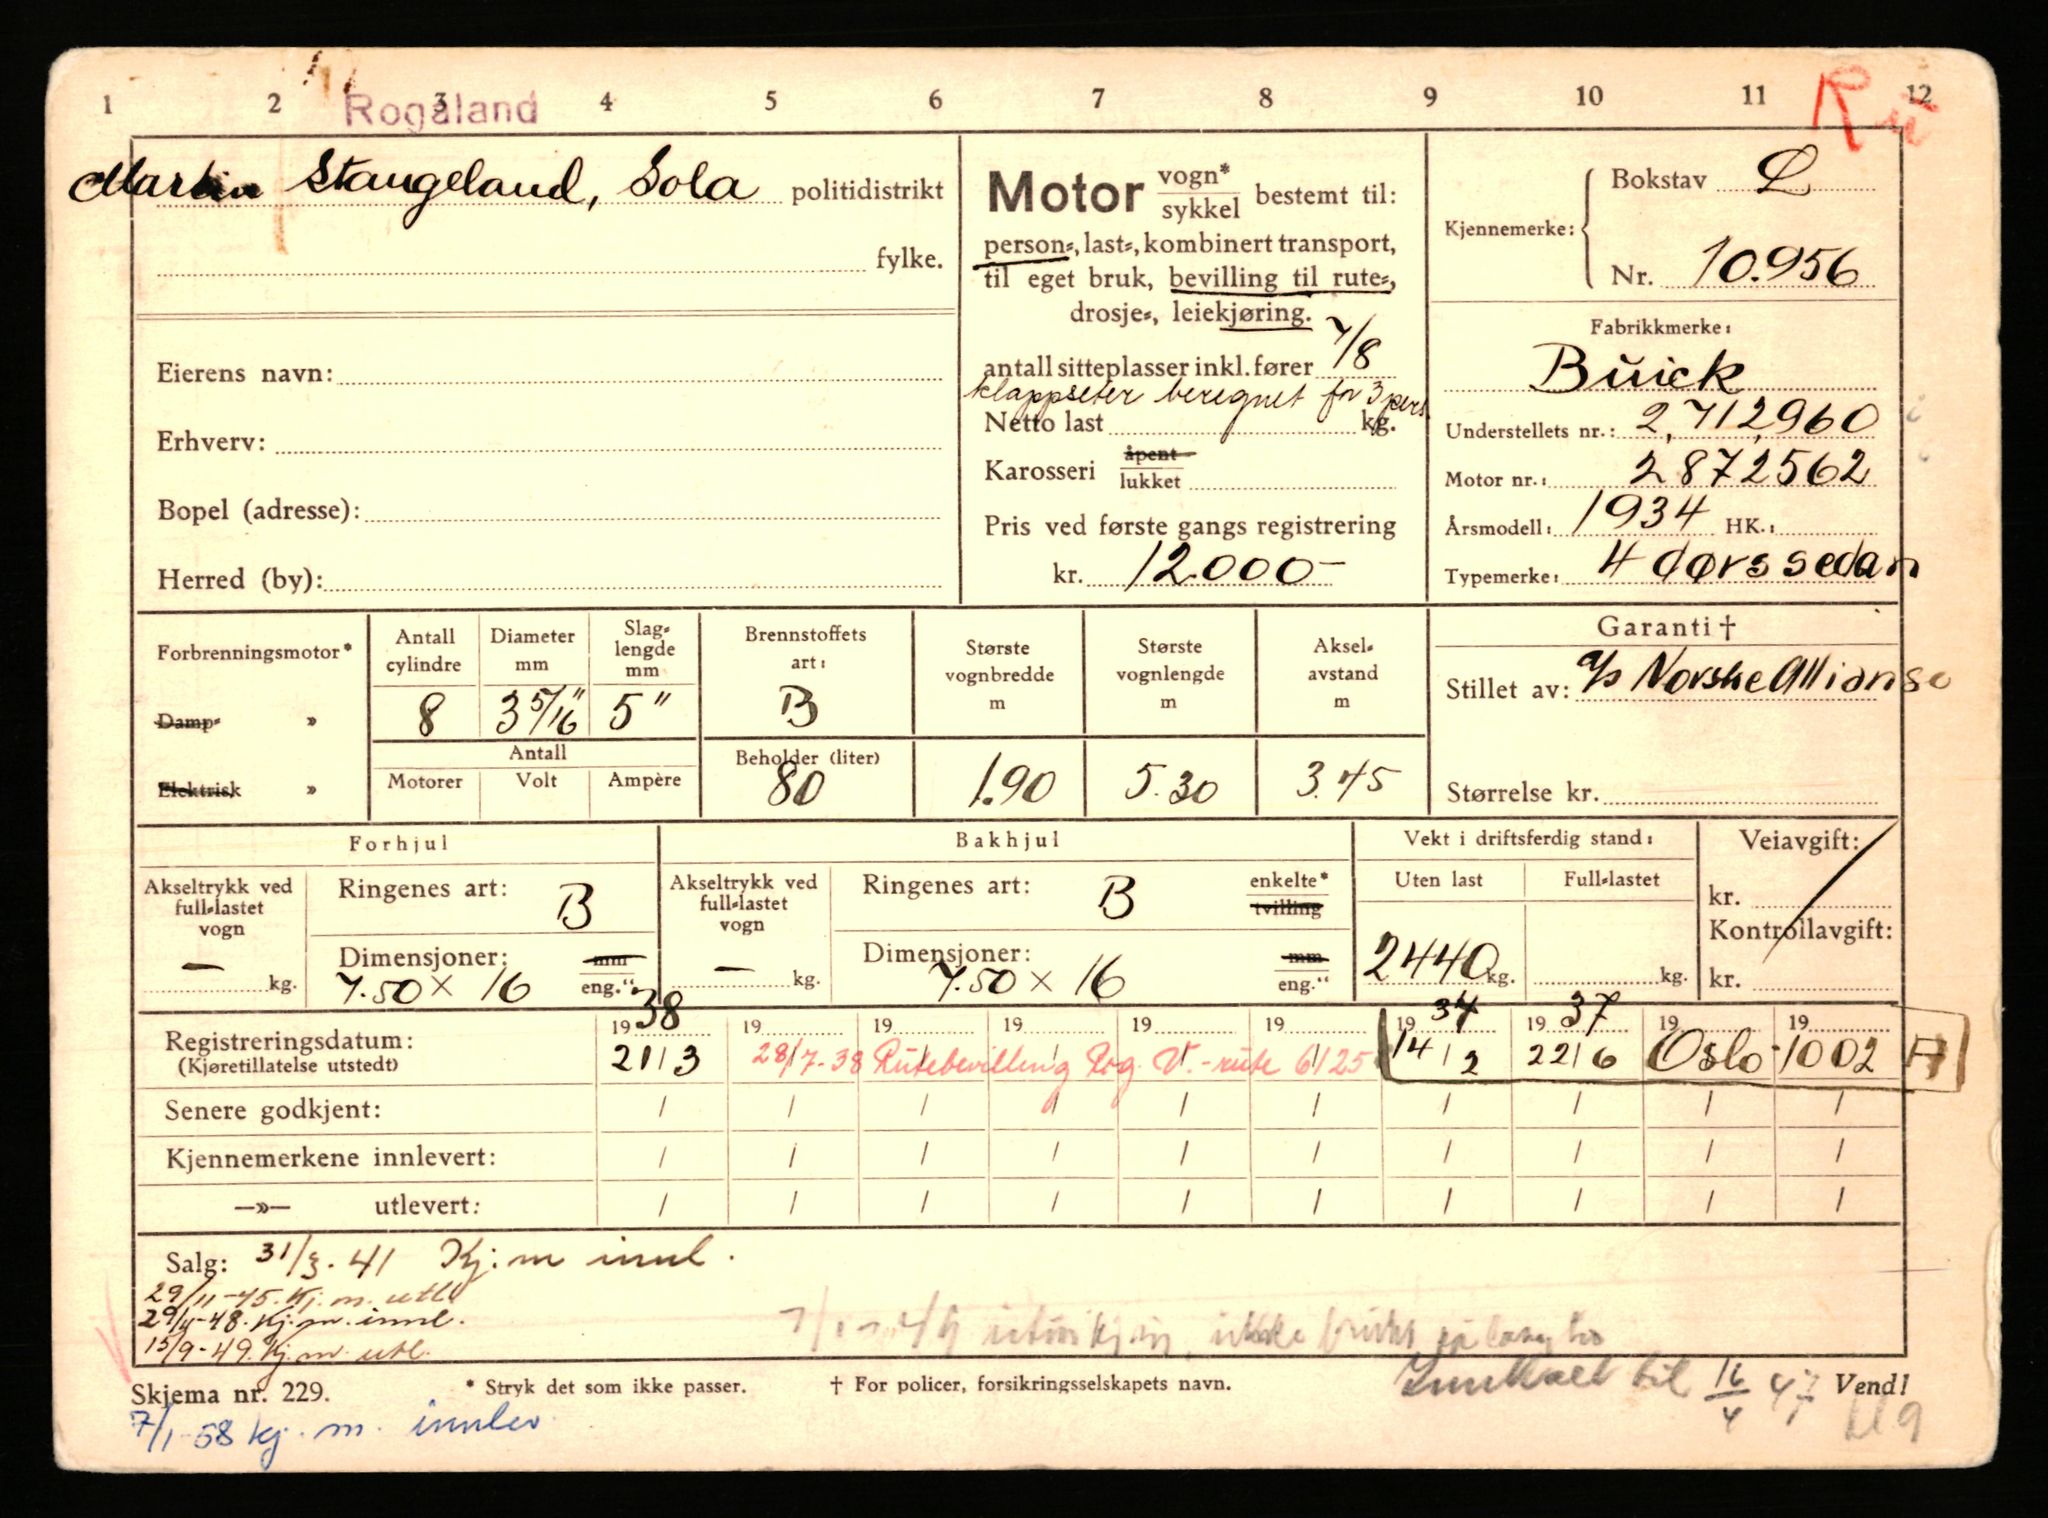 1 2 3 4 5 6 7 8 9 10 11 12
Rogaland
R
Martin Stangeland, Sola politidistrikt
fylke.
Eierens navn:
Erhverv:
Bopel (adresse):
Herred (by):
Motor vogn* sykkel bestemt til:
person-, last-, kombinert transport,
til eget bruk, bevilling til rute-,
drosje-, leiekjøring.
antall sitteplasser inkl. fører 7/8
klappseter beregnet for 3 pers
Netto last kg.
Karosseri åpent lukket
Pris ved første gangs registrering
kr. 12000-
Kjennemerke: Bokstav L
Nr. 10.956
Fabrikkmerke:
Buick
Understellets nr.: 2,712,960
Motor nr.: 2872562
Årsmodell: 1934 HK.:
Typemerke: 4 dørs sedan
Forbrenningsmotor*
Damp- »
Elektrisk »
Antall cylindre
8
Diameter mm
3 5/16"
Slaglengde mm
5"
Antall
Motorer Volt Ampère
Brennstoffets art:
B
Beholder (liter)
80
Største vognbredde m
1.90
Største vognlengde m
5.30
Akselavstand m
3.45
Garanti †
Stillet av: A/S Norske Allianse
Størrelse kr.
Forhjul
Akseltrykk ved full-lastet vogn
— kg.
Ringenes art: B
Dimensjoner: mm eng."
7.50 × 16
Bakhjul
Akseltrykk ved full-lastet vogn
— kg.
Ringenes art: B enkelte* tvilling
Dimensjoner: mm eng."
7.50 × 16
Vekt i driftsferdig stand:
Uten last Full-lastet
2440 kg. kg.
Veiavgift:
kr.
Kontrollavgift:
kr.
Registreringsdatum: 1938 19 19 19 19 19 1934 1937 19 19
(Kjøretillatelse utstedt) 21/3 28/7-38 Rutebevilling Rog. V.-rute 6125 14/2 22/6 Oslo - 1002 A
Senere godkjent: / / / / / / / / / /
Kjennemerkene innlevert: / / / / / / / / / /
—»— utlevert: / / / / / / / / / /
Salg: 31/3-41 Kj: m innl.
29/11-45. Kj. m. utl
29/4-48. Kj. m. innl.
15/9-49. Kj. m. utl.
Skjema nr. 229. * Stryk det som ikke passer. † For policer, forsikringsselskapets navn. Innkalt til 16/4 47 Vend!
7/1-58 kj. m. innlev